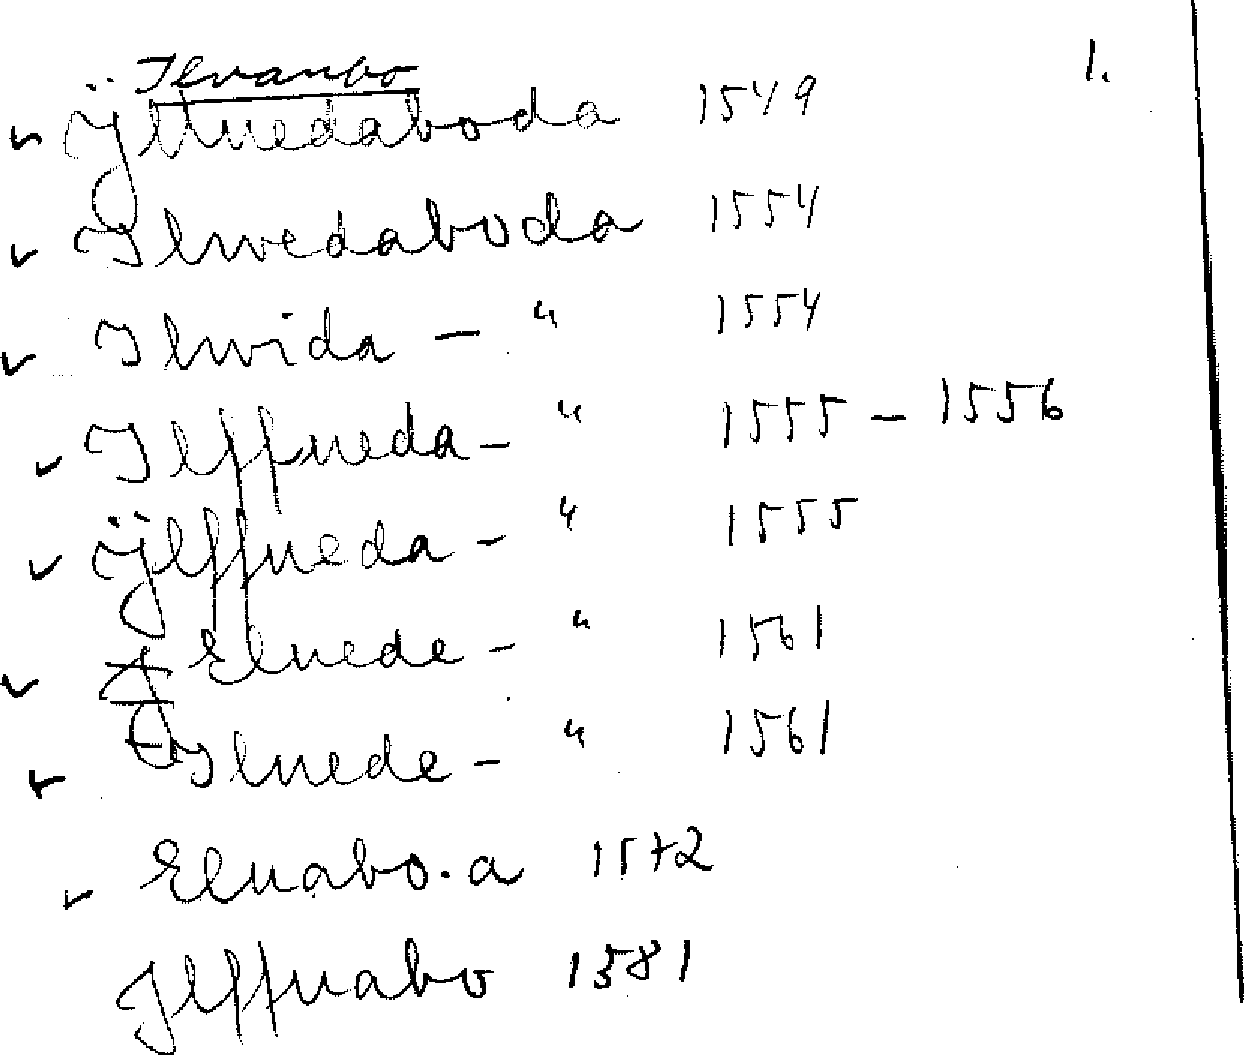 Ilvanbo 1.
ÿlluedaboda 1549
Ilwedaboda 1554
Ilwida - " 1554
Ilffueda - " 1555 - 1556
ÿlffueda - " 1555
Eluede - " 1561
Iluede - " 1561
Eluabo.a 1572
Jlffuabo 1581